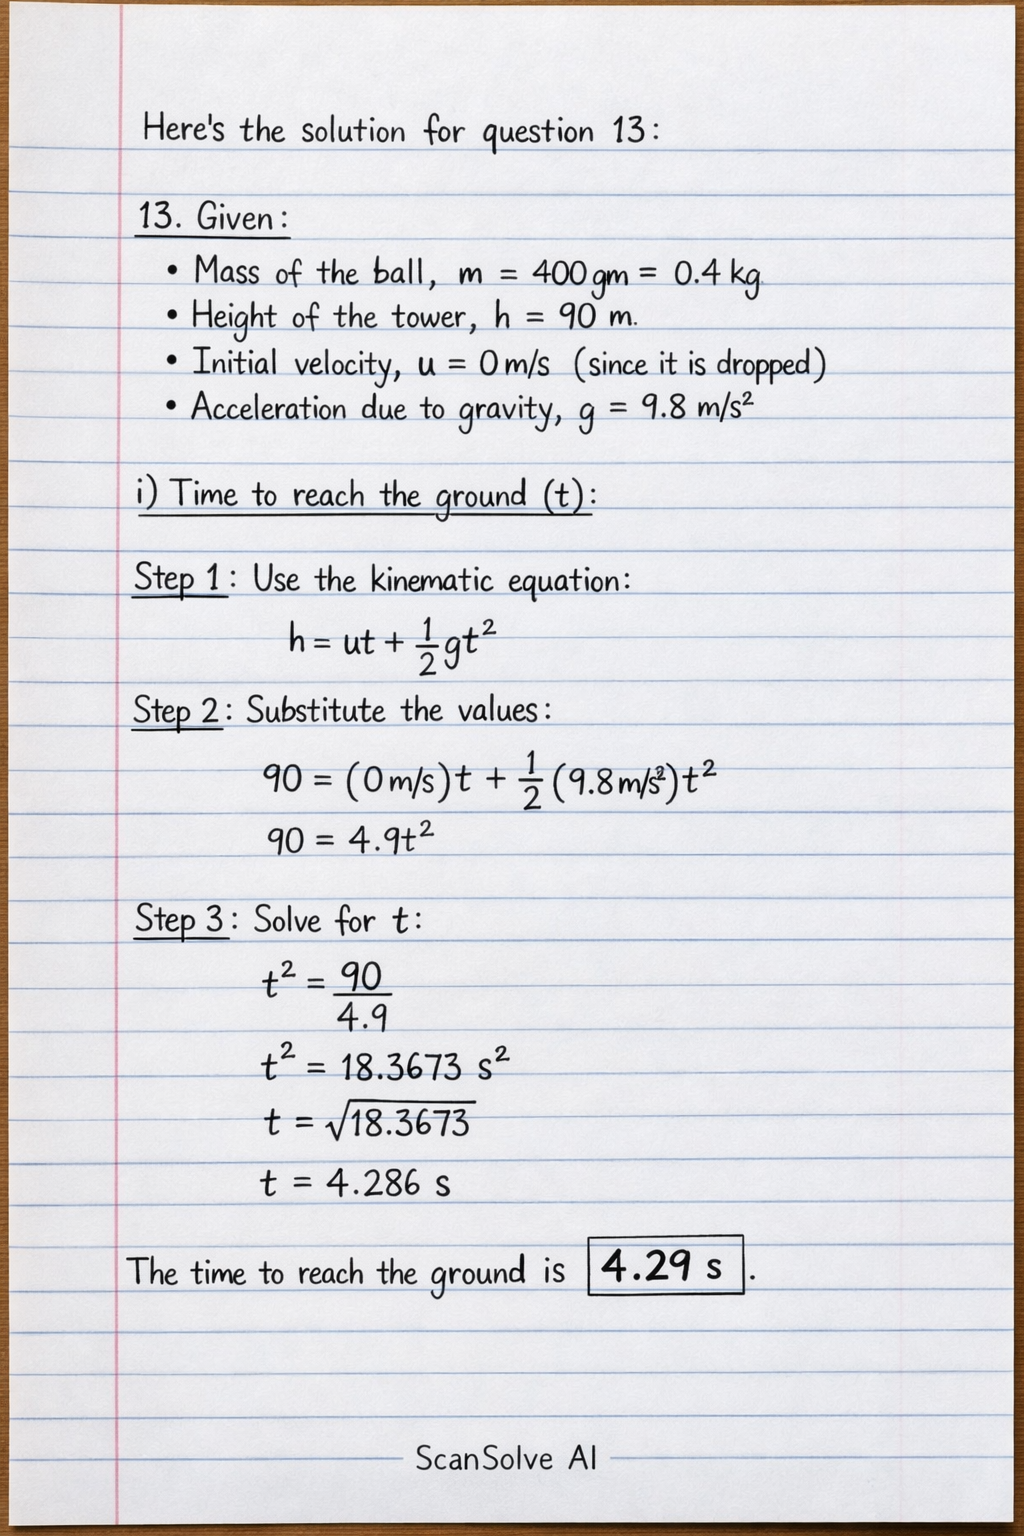 Here's the solution for question 13:
13. Given:
• Mass of the ball, m = 400 gm = 0.4 kg.
• Height of the tower, h = 90 m.
• Initial velocity, u = 0 m/s (since it is dropped)
• Acceleration due to gravity, g = 9.8 m/s²
i) Time to reach the ground (t):
Step 1: Use the kinematic equation:
h = ut + 1/2 gt²
Step 2: Substitute the values:
90 = (0 m/s)t + 1/2 (9.8 m/s²)t²
90 = 4.9t²
Step 3: Solve for t:
t² = 90/4.9
t² = 18.3673 s²
t = √18.3673
t = 4.286 s
The time to reach the ground is 4.29 s.
ScanSolve AI